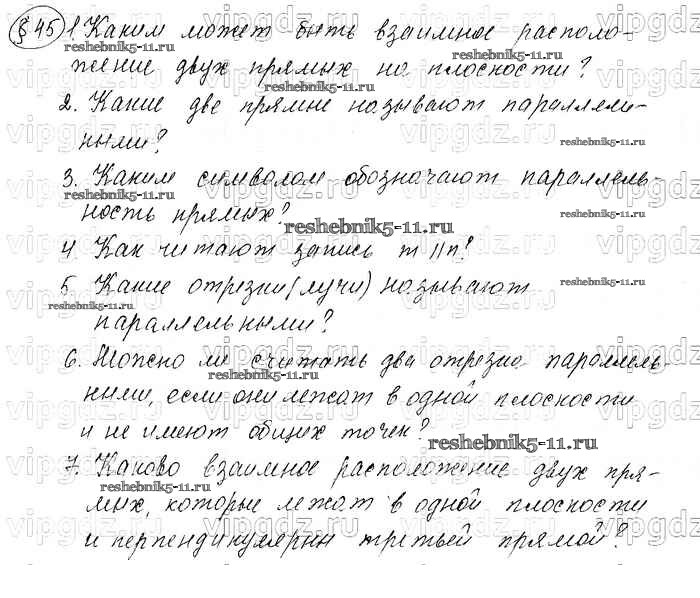 §45 1. Каким может быть взаимное располо-
жение двух прямых на плоскости?
2. Какие две прямые называют параллель-
ными?
3. Каким символом обозначают параллель-
ность прямых?
4. Как читают запись m || n?
5. Какие отрезки (лучи) называют
параллельными?
6. Можно ли считать два отрезка параллель-
ными, если они лежат в одной плоскости
и не имеют общих точек?
7. Каково взаимное расположение двух пря-
мых, которые лежат в одной плоскости
и перпендикулярны третьей прямой?
reshebnik5-11.ru
vipgdz.ru